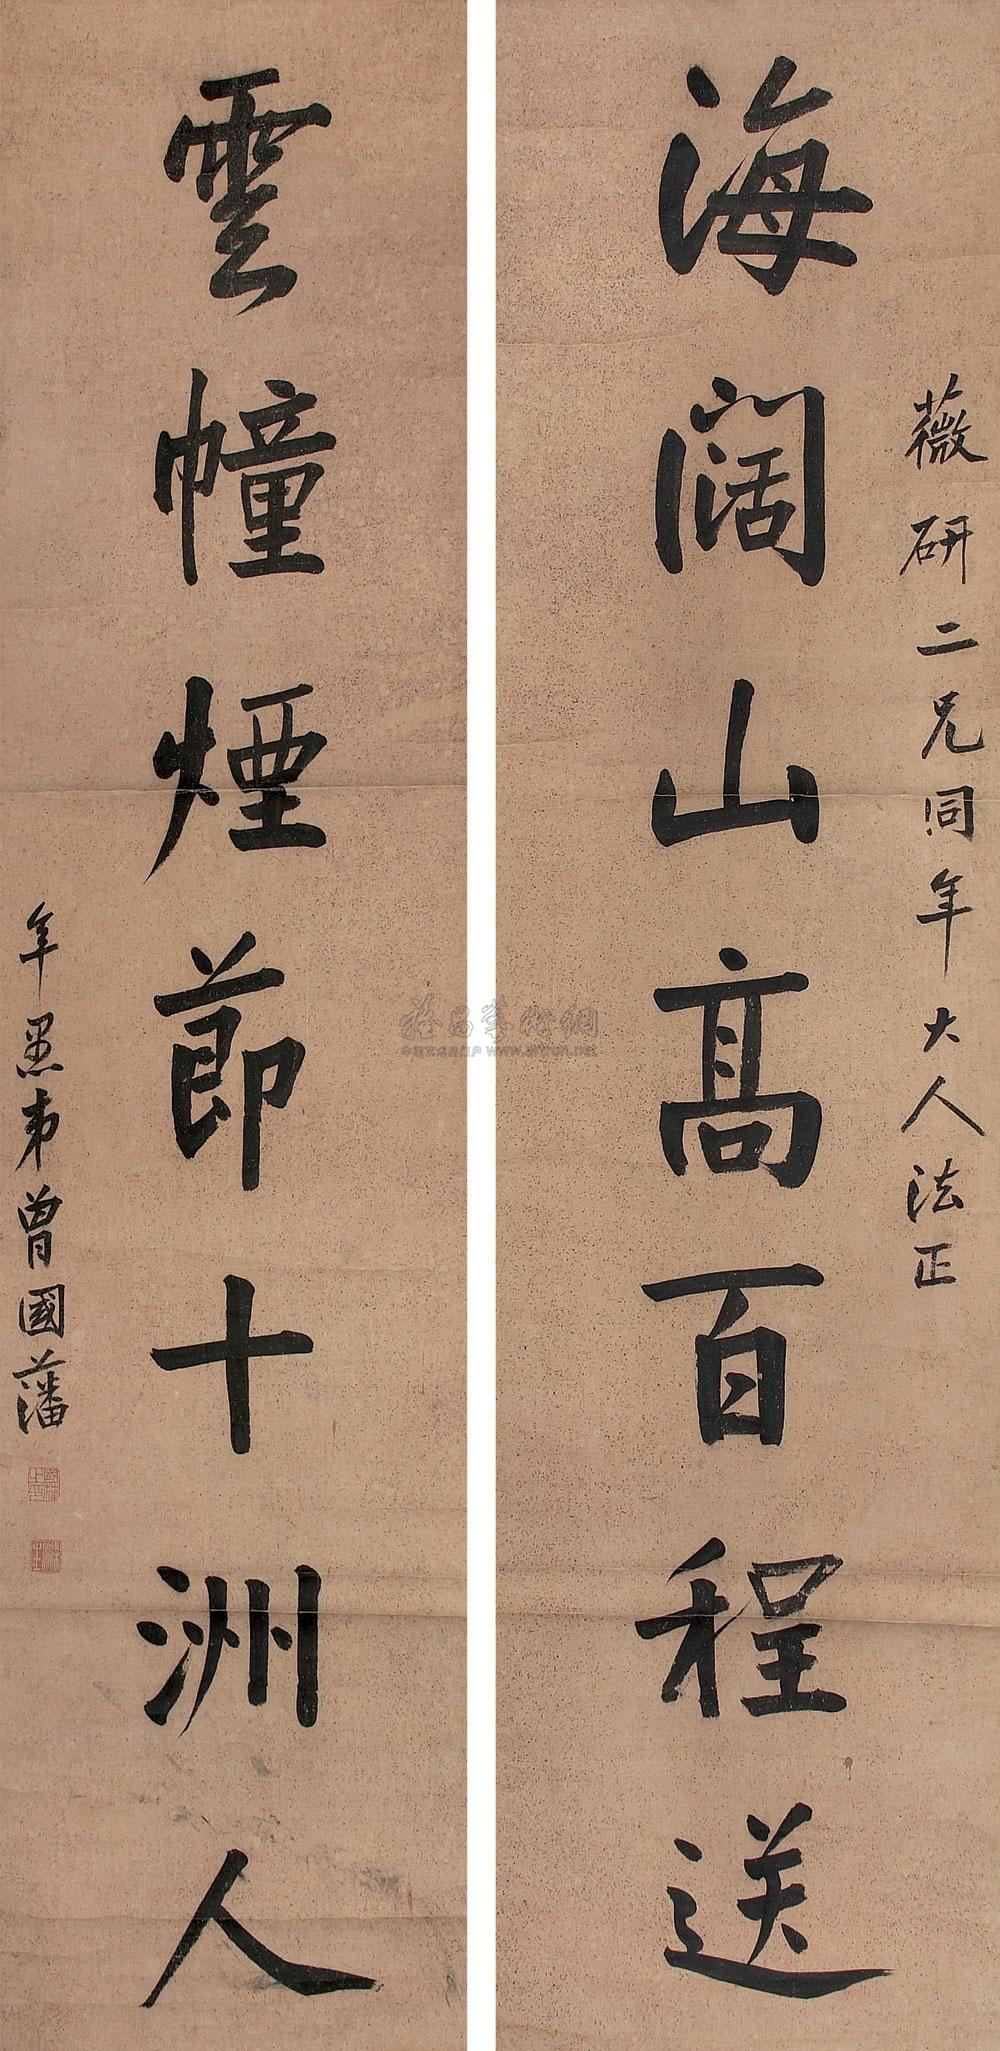 薇研二兄同年大人法正
海闊山高百程送
雲幢煙節十洲人
年愚弟曾國藩